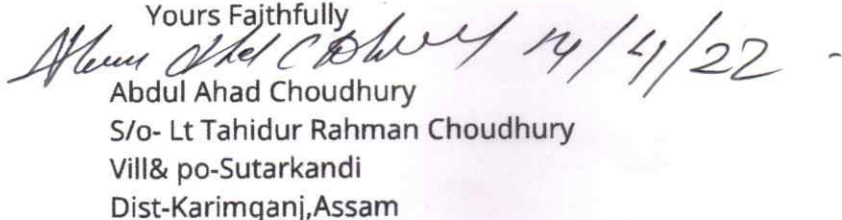 Yours Faithfully
14/4/22
Abdul Ahad Choudhury
S/o- Lt Tahidur Rahman Choudhury
Vill& po-Sutarkandi
Dist-Karimganj,Assam